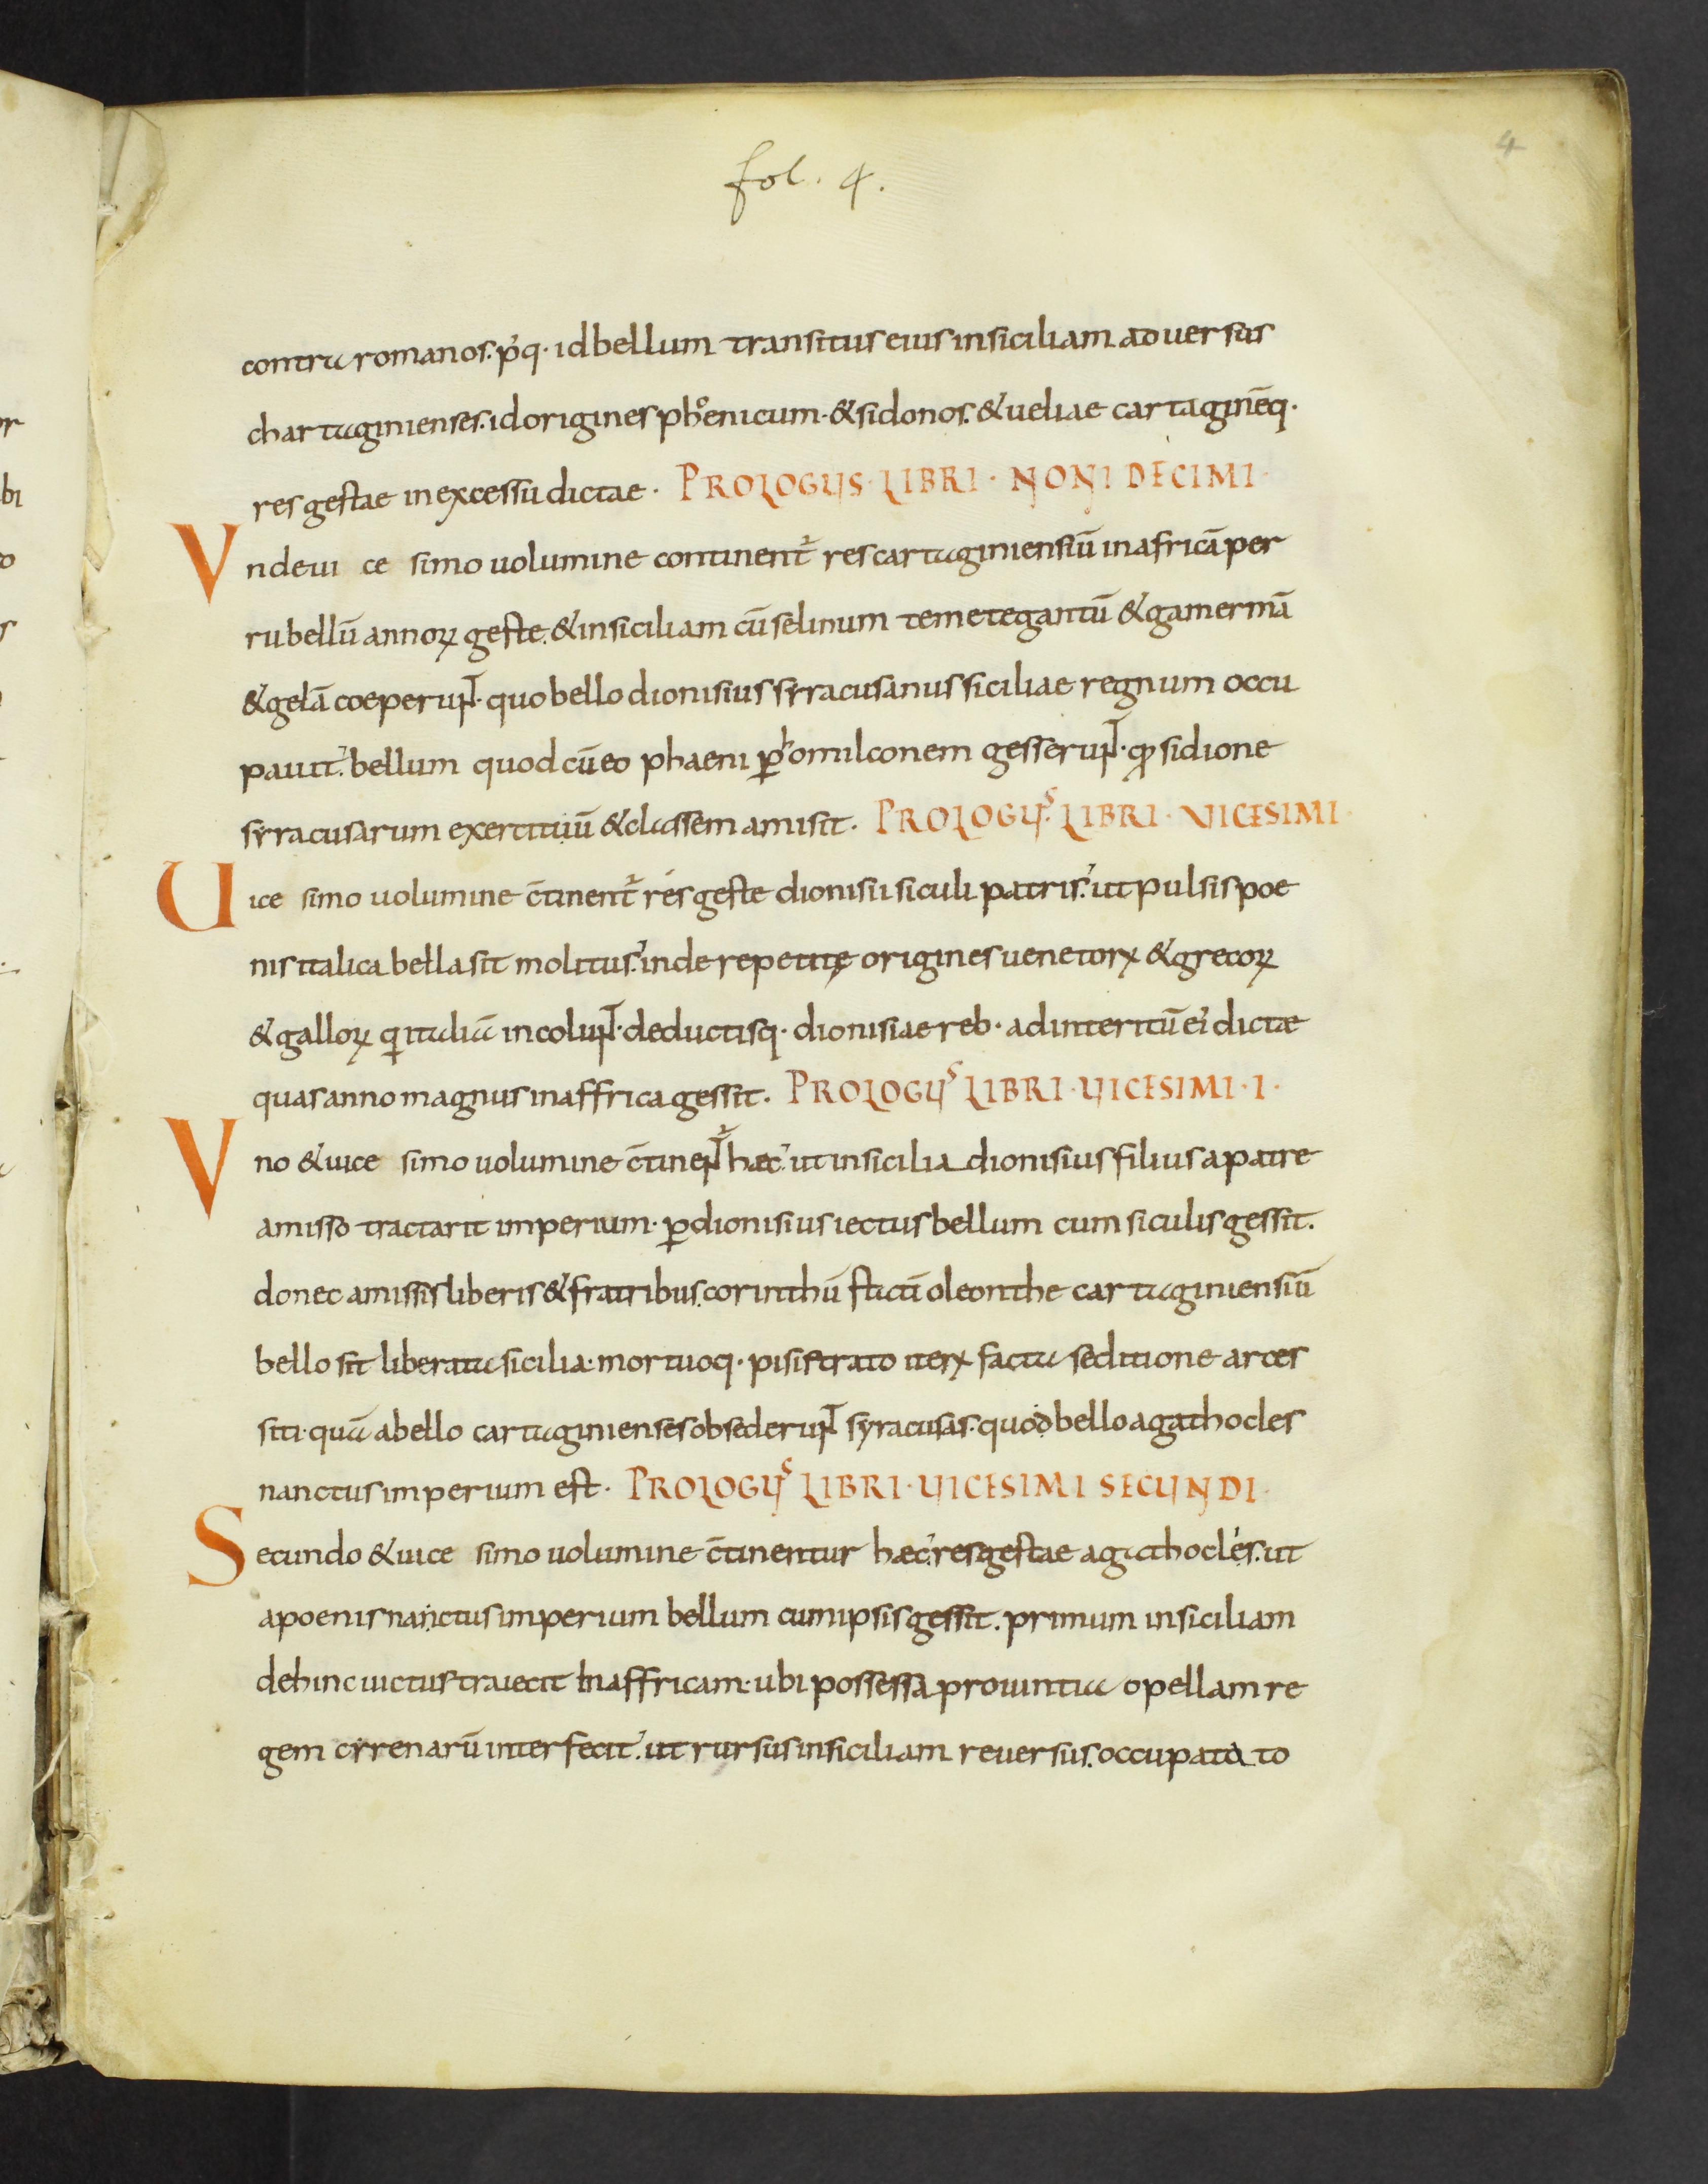 4
fol. 4.
contra romanos. p̓q· id bellum transitus eius insiciliam aduersus
chartaginienses. id origines phoenicum· & sidonos. & ueliae cartaginēq·
res gestae in excessu dictae· PROLOGUS· LIBRI· NONI DECIMI·
Vndeui ce simo uolumine continent̄ res cartaginiensiū inafricā per
rubellū annoꝝ geste. & insiciliam cū selinum temetegantū & gamermā
& gelā coeperunt· quo bello dionisius syracusanus siciliae regnum occu
pauit. bellum quod cū eo phaeni ꝑ homilconem gesserunt· qꝓ sidione
syracusarum exertituū & classem amisit. PROLOGUS· LIBRI· VICESIMI·
Uice simo uolumine c̄tinent̄ rés geste dionisii siculi patris. ut pulsis poe
nis italica bella sit molitus. inde repetitę origines uenetorꝝ & grecoꝝ
& galloꝝ q italiā incolunt· deductisq· dionisiae reb· adinteritū ei dictae
quas anno magnus inaffrica gessit. PROLOGUS LIBRI· UICESIMI· I·
Vno & uice simo uolumine c̄tinent̄ haec. ut insicilia dionisius filius a patre
amisso tractarit imperium· ꝑ dionisius iectus bellum cum siculis gessit.
donec amissis liberis & fratribus. corinthū stictī oleonthe cartaginiensiū
bello sit liberata sicilia. mortuoq· pisistrato iterꝝ facta seditione arces
siti· quā abello cartaginienses obsederunt syracusas. quod bello agathocles
nanctus imperium est· PROLOGUS LIBRI· UICESIMI SECUNDI·
Secundo & uice simo uolumine c̄tinentur haec. res gestae agathoclés. ut
apoenis nanctus imperium bellum cum ipsis gessit. primum insiciliam
dehinc uictus traiecit Inaffricam. ubi possessa prouintia opellam re
gem cyrenarū interfecit. ut rursus insiciliam reuersus. occupata to